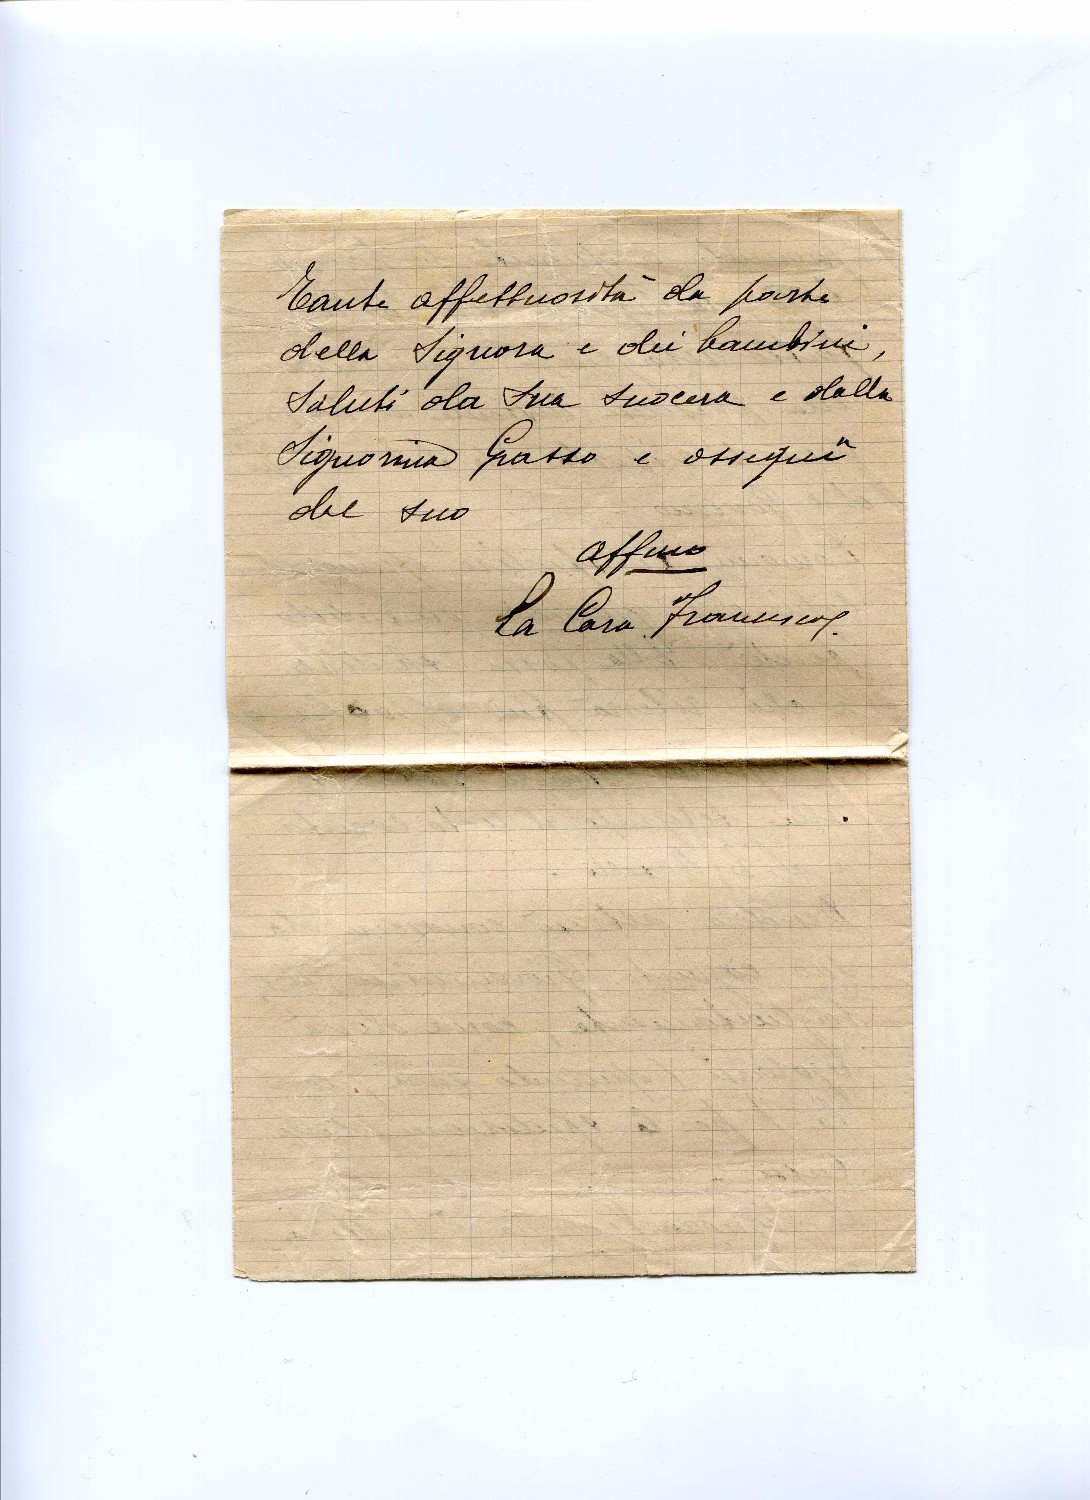 Tante affettuosità da parte
della Signora e dei bambini,
saluti da sua suocera e dalla
Signorina Grasso e ossequi
dal suo
affmo
La Cara Francesco